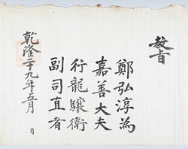 教旨
鄭弘淳為
嘉善大夫
行龍驤衛
副司直者
乾隆二十九年五月 日